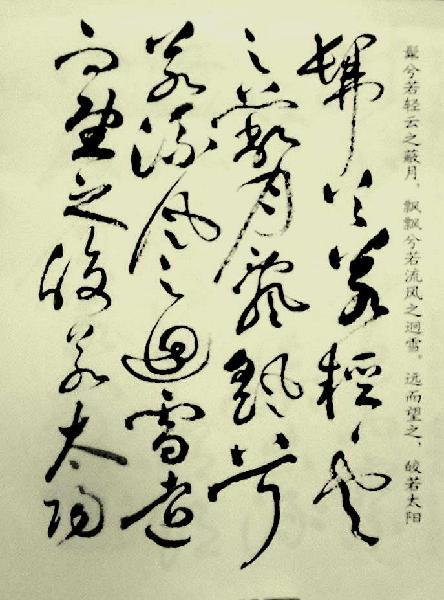 髴兮若轻云之蔽月，飘飘兮若流风之迴雪。远而望之，皎若太阳
髴兮若輕雲
之蔽月飄飖兮
若流風之迴雪遠
而望之皎若太陽